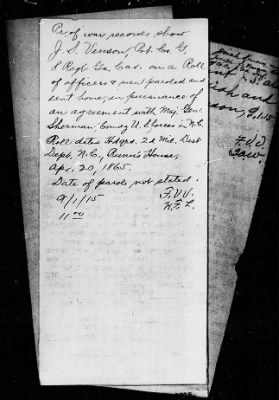 Pr. of war records show
J. S. Venson, Pvt. Co. G,
8 Regt Ga. Cav. on a Roll
of officers & men paroled and
sent home, in pursuance of
an agreement with Maj. Gen.
Sherman, Comdg U.S. forces in N.C.
Roll dated Hdqrs. 2d Mil. Dist
Dept. N.C., House,
Apr. 20, 1865.
Date of parole not stated.
9/1/15
11 00
and